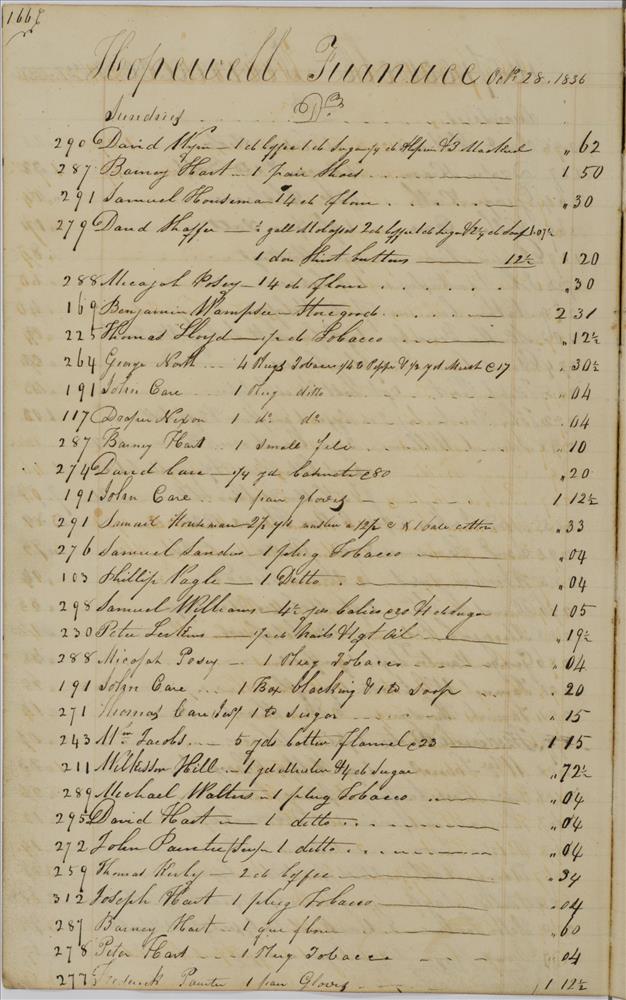 166
Hopewell Furnace Octr 28. 1836
Sundries Drs
290 David Wynn 1 lb Coffee 1 lb Sugar & 3 Mackerel " 62
287 Barney Hart 1 pair Shoes 1 50
291 Samuel Houseman 14 lb flour " 30
279 David Shaffer ½ gall Molasses 2 lb Coffee 1 lb Sugar & 2½ lb Soap 1.07½
1 doz Shirt buttons 12½ 1 20
288 Micajah Posey 14 lb flour " 30
169 Benjamin Wampsee Storegoods 2 31
225 Thomas Lloyd ½ lb Tobacco " 12½
264 George North 4 Plugs Tobacco ¼ lb Pepper & ½ yd Musl @ 17 " 30½
191 John Care 1 Plug ditto " 04
117 Draper Nixon 1 do do " 04
287 Barney Hart 1 small file " 10
274 David Care ¼ yd @ 80 " 20
191 John Care 1 pair gloves 1 12½
291 Samuel Houseman 2½ yds muslin @ 12½ c & 1 bale cotton " 33
276 Samuel Sands 1 plug Tobacco " 04
103 Phillip Nagle 1 Ditto " 04
298 Samuel Williams 4½ yds Calico @ 20 & 1 lb Sugar 1 05
230 Peter ½ lb Nails & 1 qt Oil " 19½
288 Micajah Posey 1 Plug Tobacco " 04
191 John Care 1 Box blacking & 1 lb Soap " 20
271 Thomas Care Jun 1 lb Sugar " 15
243 Wm Jacobs 5 yds Cotton flannel @ 23 1 15
211 Wilkinson Hill 1 yd Muslin & 4 lb Sugar " 72½
289 Michael Walters 1 plug Tobacco " 04
295 David Hart 1 ditto " 04
272 John Painter (Sen) 1 ditto " 04
259 Thomas Kirby 2 lb Coffee " 34
312 Joseph Hart 1 plug Tobacco " 04
287 Barney Hart 1 qur flour " 60
278 Peter Hart 1 Plug Tobacco " 04
277 Frederick Painter 1 pair Gloves 1 12½